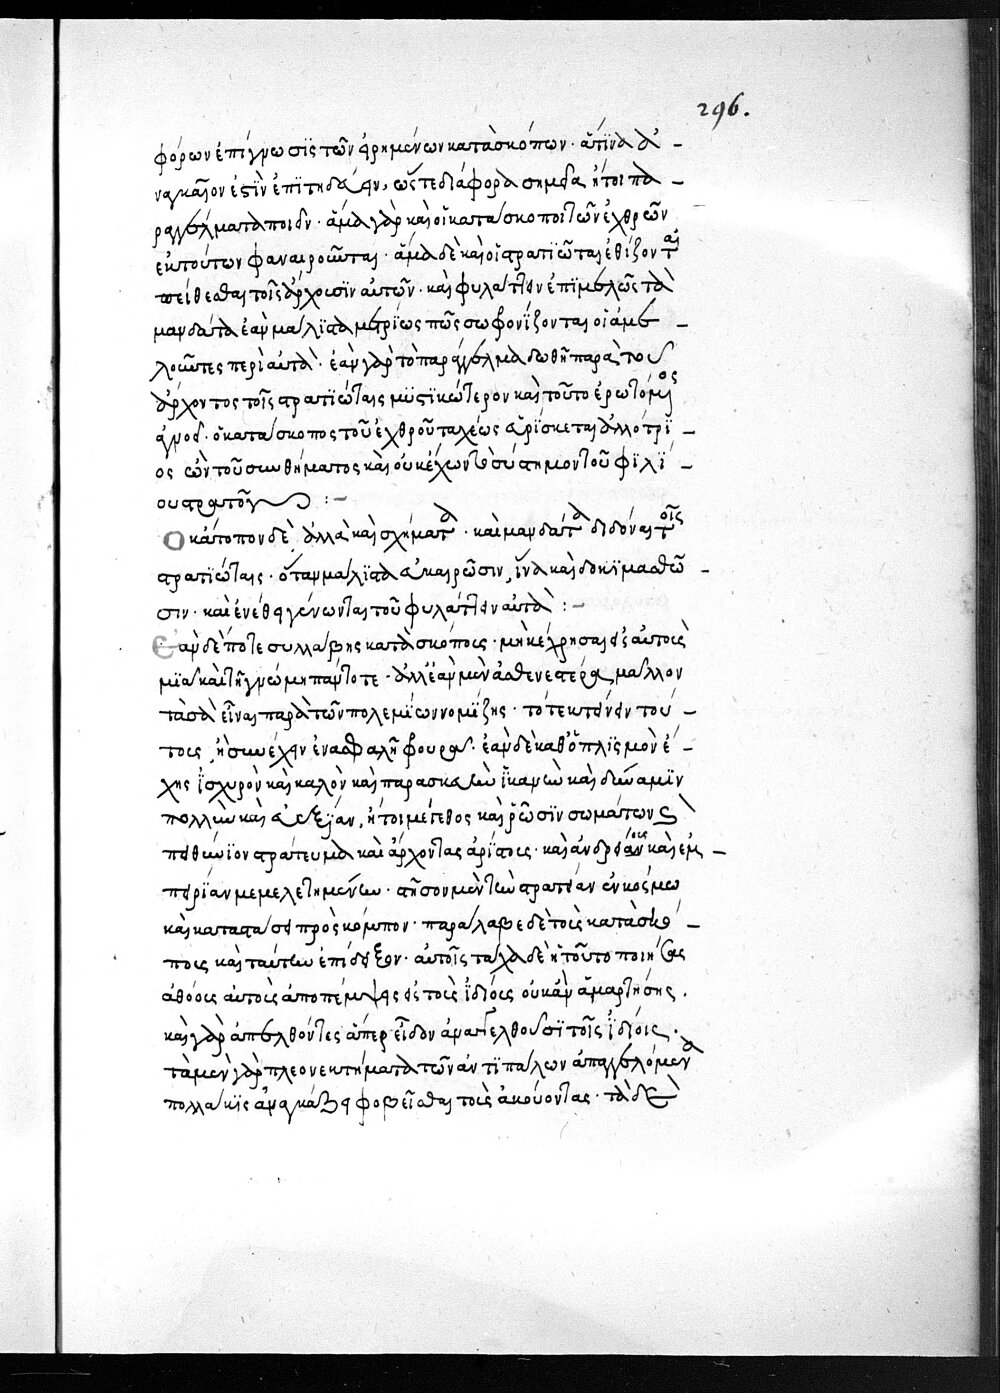 296.
φόρων ἐπίγνωσις τῶν εἰρημένων κατασκόπων· ἅτινα ἀ-
ναγκαῖον ἐστὶν ἐπιτηδεύειν, ὥστε διάφορα σημεῖα ἤτοι πα-
ραγγέλματα ποιεῖν· ἅμα γὰρ καὶ οἱ κατάσκοποι τῶν ἐχθρῶν
ἐκ τούτων φαναιροῦνται· ἅμα δὲ καὶ οἱ στρατιῶται ἐθίζονται
πείθεσθαι τοῖς ἄρχουσιν αὐτῶν· καὶ φυλάττειν ἐπιμελῶς τὰ
μανδάτα ἐὰν μάλιστα μετρίως πῶς σωφρονίζονται οἱ ἀμε-
λοῦντες περὶ αὐτά· ἐὰν γὰρ τὸ παράγγελμα δωθῆ παρὰ τοῦ
ἄρχοντος τοῖς στρατιώταις μυστικώτερον καὶ τοῦτο ἐρωτόμενος
ἀγνοεῖ· ὁ κατάσκοπος τοῦ ἐχθροῦ ταχέως εὑρίσκεται ἀλλότρι-
ος ὢν τοῦ συνθήματος καὶ οὐκ ἔχων τὸ σύσημον τοῦ φιλί-
ου στρατοῦ :-
Οὐκ ἄτοπον δὲ, ἀλλὰ καὶ σχήματα· καὶ μανδάτα διδόναι τοῖς
στρατιώταις· ὅταν μάλιστα εὐκαιρῶσιν, ἵνα καὶ δοκιμασθῶ-
σιν· καὶ ἐν ἔθει γένωνται τοῦ φυλάττειν αὐτά :-
Ἐὰν δέποτε συλλάβης κατασκόπους· μὴ κέχρησαι εἰς αὐτοὺς
μιᾷ καὶ τῇ γνώμη πάντοτε· ἀλλ' ἐὰν μὲν ἀσθενεστέρα μᾶλλον
τὰ σὰ εἶναι παρὰ τῶν πολεμίων νομίζης· τότε κτείνειν τού-
τους, ἢ συνέχειν ἐν ἀσφαλῆ φουρᾶ· ἐὰν δὲ καθόπλισμὸν ἔ-
χης ἰσχυρὸν καὶ καλὸν καὶ παρασκευὴν ἱκανὴν καὶ δύναμιν
πολλὴν καὶ εὐεξίαν, ἤτοι μέγεθος καὶ ῥῶσιν σωμάτων καὶ
πειθήνιον στράτευμα καὶ ἄρχοντας ἀρίστους· καὶ ἀνδρείους καὶ ἐμ-
πειρίαν μεμελετημένην· στῆσον μὲν τὴν στρατείαν ἐν κόσμω
καὶ καταστάσει πρὸς κόμπον· παράλαβε δὲ τοὺς κατασκό-
πους καὶ ταύτην ἐπίδειξον· αὐτοῖς τάχα δὲ ἢ τοῦτο ποιήσας
ἀθώους αὐτοὺς ἀποπέμψεις εἰς τοὺς ἰδίους οὐκ ἂν ἁμαρτήσης.
καὶ γὰρ ἀπελθόντες ἅπερ εἶδον ἀναγγελθοῦσι τοῖς ἰδίοις·
τὰ μὲν γὰρ πλεονεκτήματα τῶν ἀντιπάλων ἀπαγγελόμενα
πολλάκις ἀναγκάζει φοβεῖσθαι τοὺς ἀκούοντας· τὰ δὲ